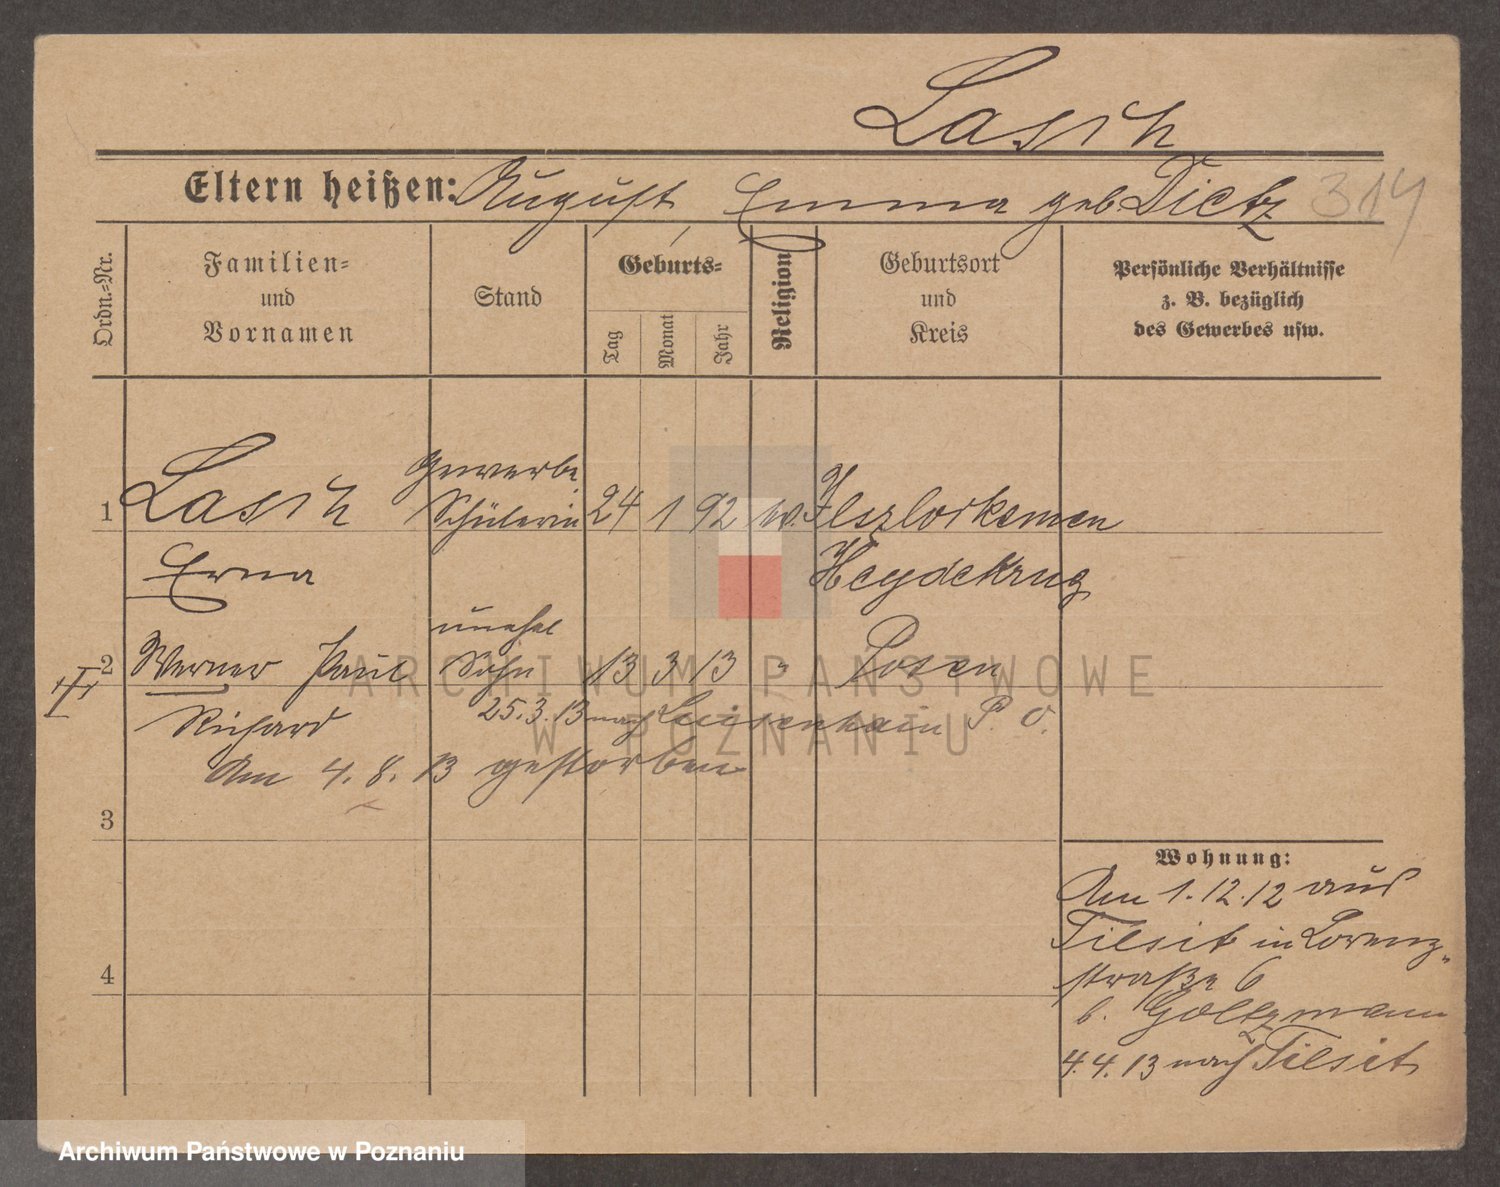 Lasch
Eltern heißen: August, Emma geb. Dietz 314
Ordn.-Nr.
Familien-
und
Vornamen
Stand
Geburts-
Tag
Monat
Jahr
Religion
Geburtsort
und
Kreis
Persönliche Verhältnisse
z. B. bezüglich
des Gewerbes usw.
Gewerbe
1 Lasch Schülerin 24 1 92 ev.
Erna Heydekrug
unehel
2 Werner Paul Sohn 13 3 13 " Posen
Richard 25.3.13 nach Luisenhain P. O.
Am 4. 8. 13 gestorben
3
4
Wohnung:
Am 1.12.12 aus
Tilsit in Lorenz-
straße 6
b. Goltzmann
4.4.13 nach Tilsit
ARCHIWUM PAŃSTWOWE
W POZNANIU
Archiwum Państwowe w Poznaniu